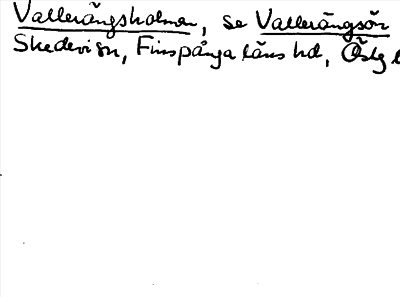 Vallerängsholmen, se Vallerängsön
Skedevi sn, Finspånga läns hd, Östg l